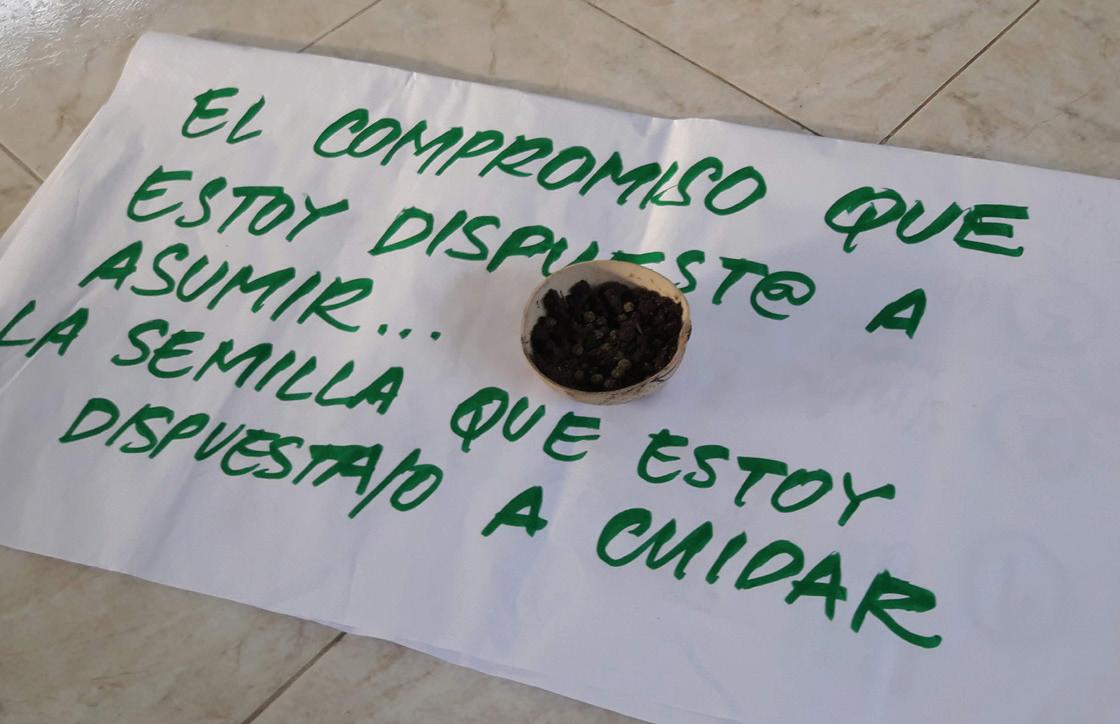 EL COMPROMISO QUE
ESTOY DISPUEST@ A
ASUMIR...
LA SEMILLA QUE ESTOY
DISPUESTA/O A CUIDAR